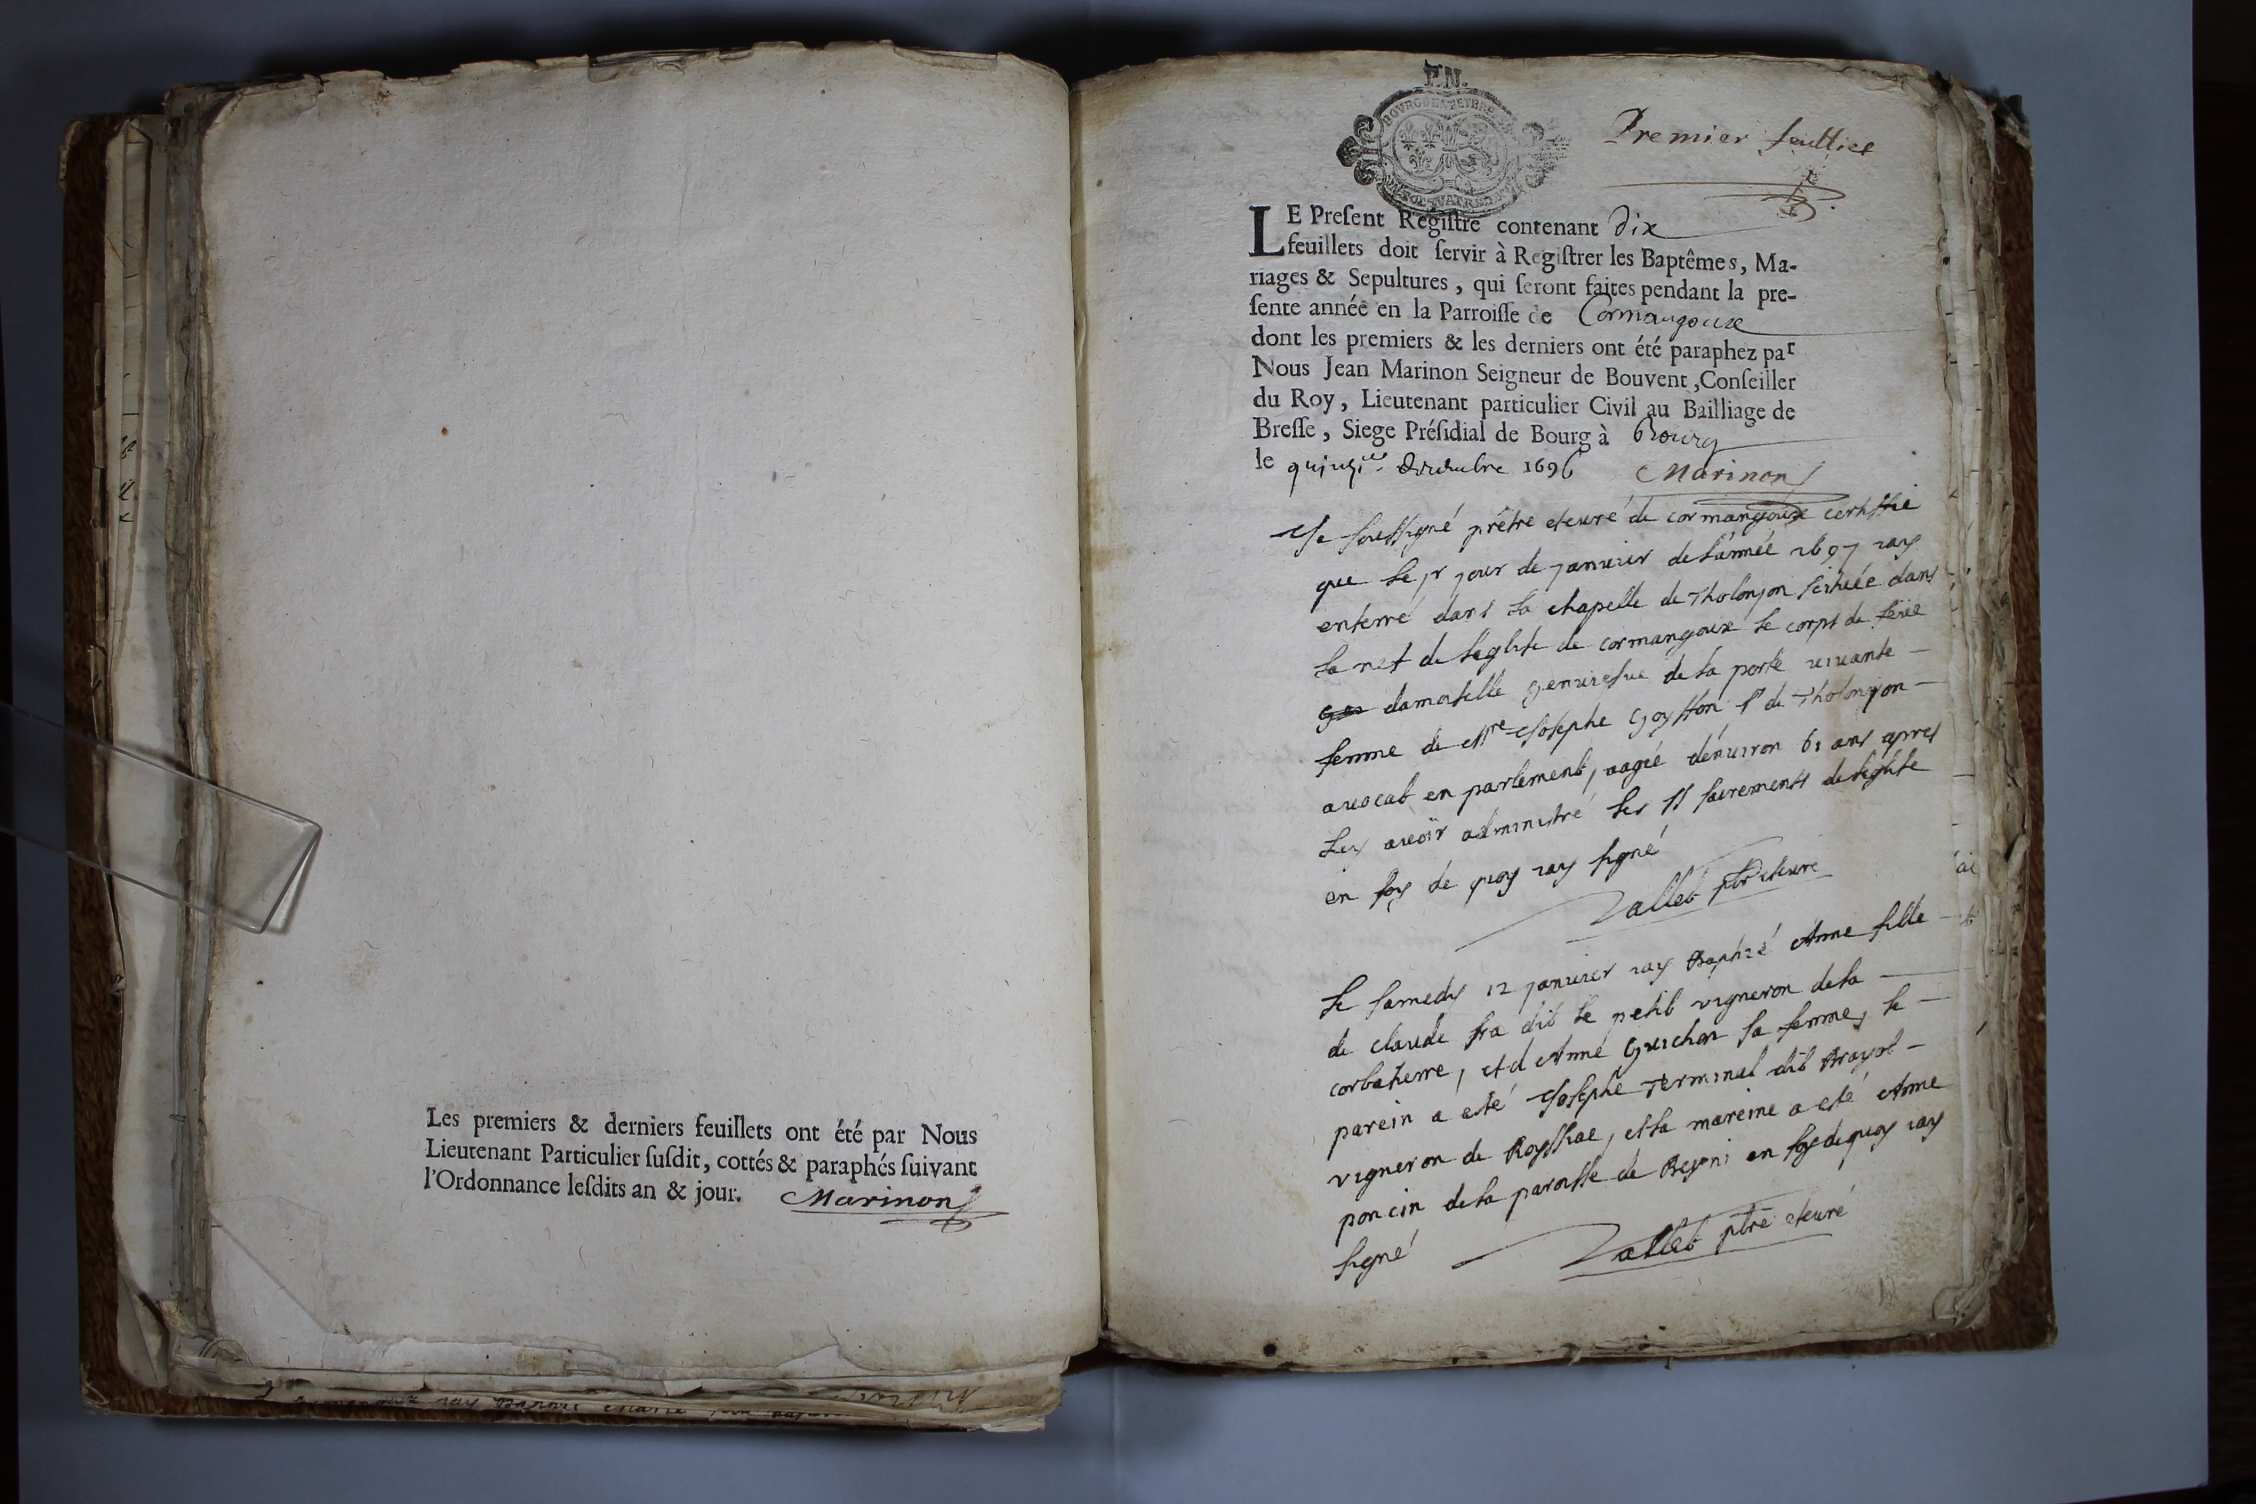 Les premiers & derniers feuillets ont été par Nous
Lieutenant Particulier ſuſdit, cottés & paraphés ſuivant
l'Ordonnance leſdits an & jour. Marinon
Premier feuillet
LE Preſent Regiſtre contenant dix
feuillets doit ſervir à Regiſtrer les Baptêmes, Ma-
riages & Sepultures, qui ſeront faites pendant la pre-
ſente année en la Parroiſſe de Cormangoux
dont les premiers & les derniers ont été paraphez par
Nous Jean Marinon Seigneur de Bouvent, Conſeiller
du Roy, Lieutenant particulier Civil au Bailliage de
Breſſe, Siege Préſidial de Bourg à Bourg
le 1696 Marinon
Je soussigné prêtre et curé de cormangoux certiffie
que le jr jour de janvier de l'année 1697 iay
enterré dans la chapelle de Tholonjon scituée dans
la nef de leglise de cormangoux le corps de
damoiselle genviefue de la porte vivante
femme de Mre Josephe Goysson Sr de Tholonjon
avocat en parlement, aagée d'environ 61 ans apres
luy avoir administré les SS sacrements de leglise
en foy de quoy iay signé
Vallet ptre et curé
le samedy 12 janvier iay Baptizé Anne fille
de claude fra dit le petit vigneron de la
corbatiere, et d'Anne Guichon sa femme, le
parein a esté Josephe Terminal dit
vigneron de Royssiae, et la mareine a esté Anne
poncin de la paroisse de en foy de quoy iay
signé Vallet ptre et curé